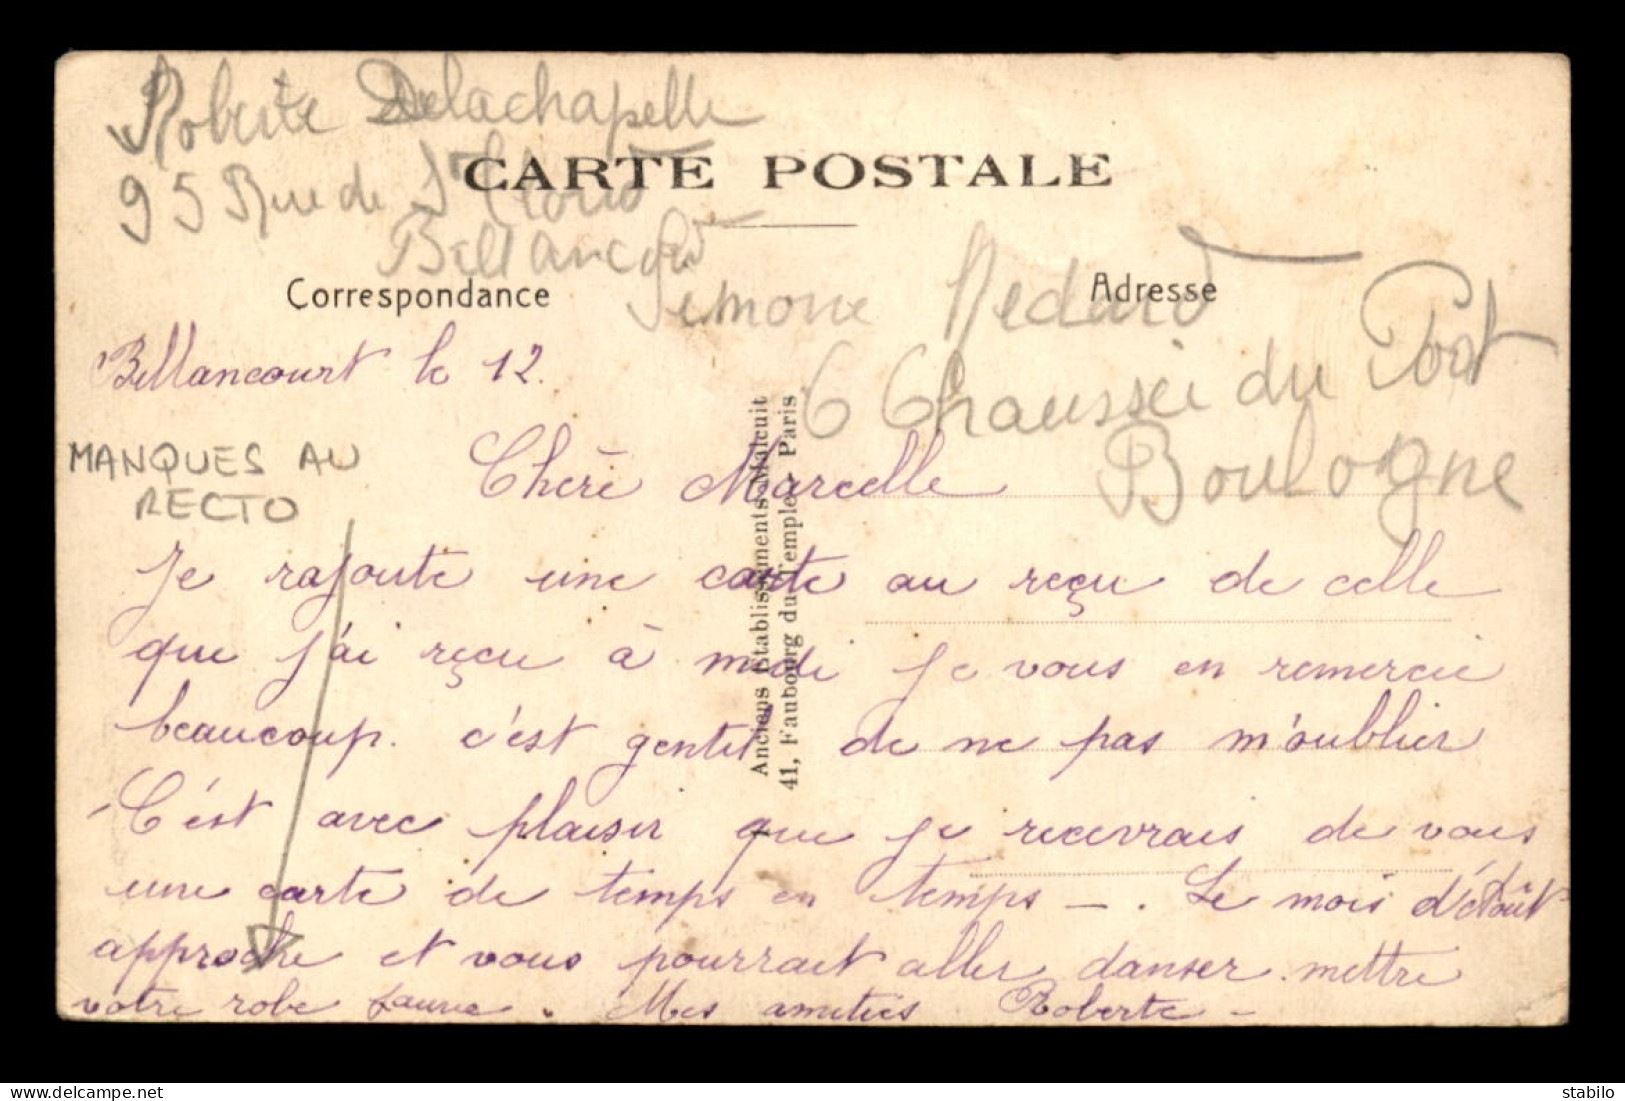 Roberte Delachapelle
95 Rue de St Cloud
CARTE POSTALE
Billancourt
Correspondance
Adresse
Simone Medard
6 Chaussée du Pont
Boulogne
Billancourt le 12.
MANQUES AU
RECTO
Chère Marcelle
Anciens Etablissements Malcuit
41, Faubourg du Temple - Paris
Je rajoute une carte au reçu de celle
que j'ai reçu à midi je vous en remercie
beaucoup. c'est gentil de ne pas m'oublier
C'est avec plaisir que je recevrais de vous
une carte de temps en temps - . Le mois d'Août
approche et vous pourrait aller danser mettre
votre robe jaune. Mes amitiés Roberte -
stabilo